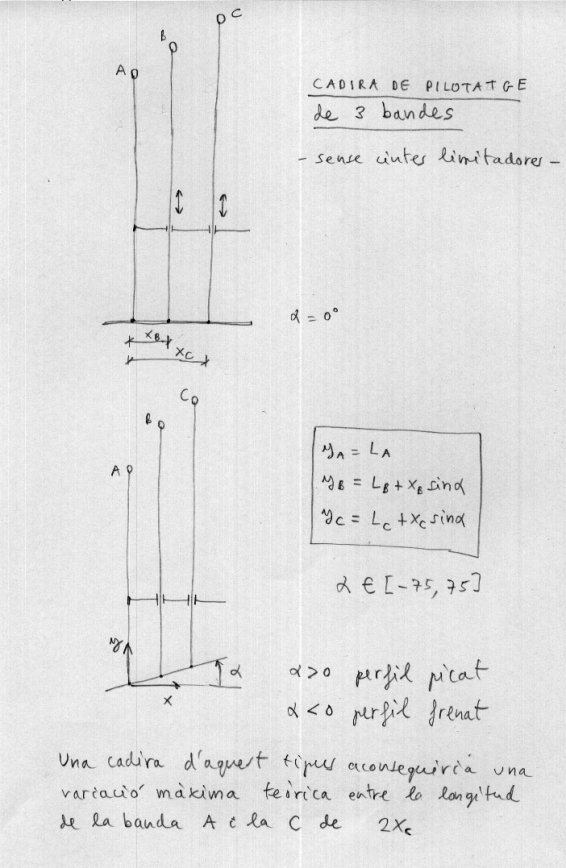 C
B
A
CADIRA DE PILOTATGE
de 3 bandes
- sense cintes limitadores -
α = 0°
X_B
X_C
C
B
A
y_A = L_A
y_B = L_B + x_B sinα
y_C = L_C + x_C sinα
α ∈ [-75, 75]
y
α
x
α>0 perfil picat
α<0 perfil frenat
Una cadira d'aquest tipus aconseguiria una
variació màxima teòrica entre la longitud
de la banda A i la C de 2X_C